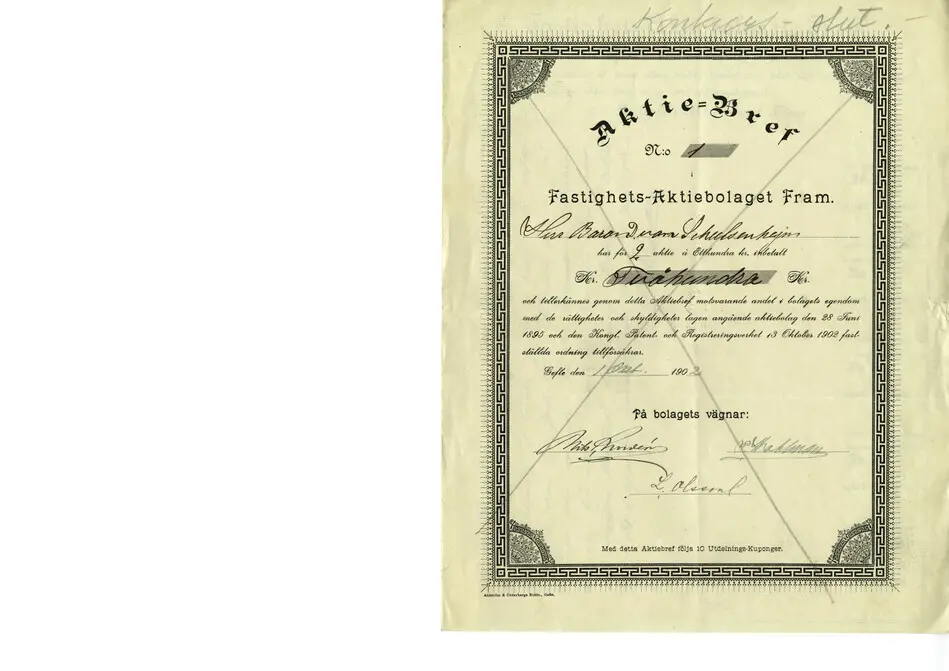 Konkurs - slut. -
Aktie=Bref
N:o 1
Fastighets-Aktiebolaget Fram.
Herr Baron
har för 2 aktie à Etthundra kr. inbetalt
Kr. Tvåhundra Kr.
och tillerkännes genom detta Aktiebref motsvarande andel i bolagets egendom
med de rättigheter och skyldigheter lagen angående aktiebolag den 28 Juni
1895 och den Kongl. Patent- och Registreringsverket 13 Oktober 1902 fast-
ställda ordning tillförsäkrar.
Gefle den 1902
På bolagets vägnar:
L. Olsson
Med detta Aktiebref följa 10 Utdelnings-Kuponger.